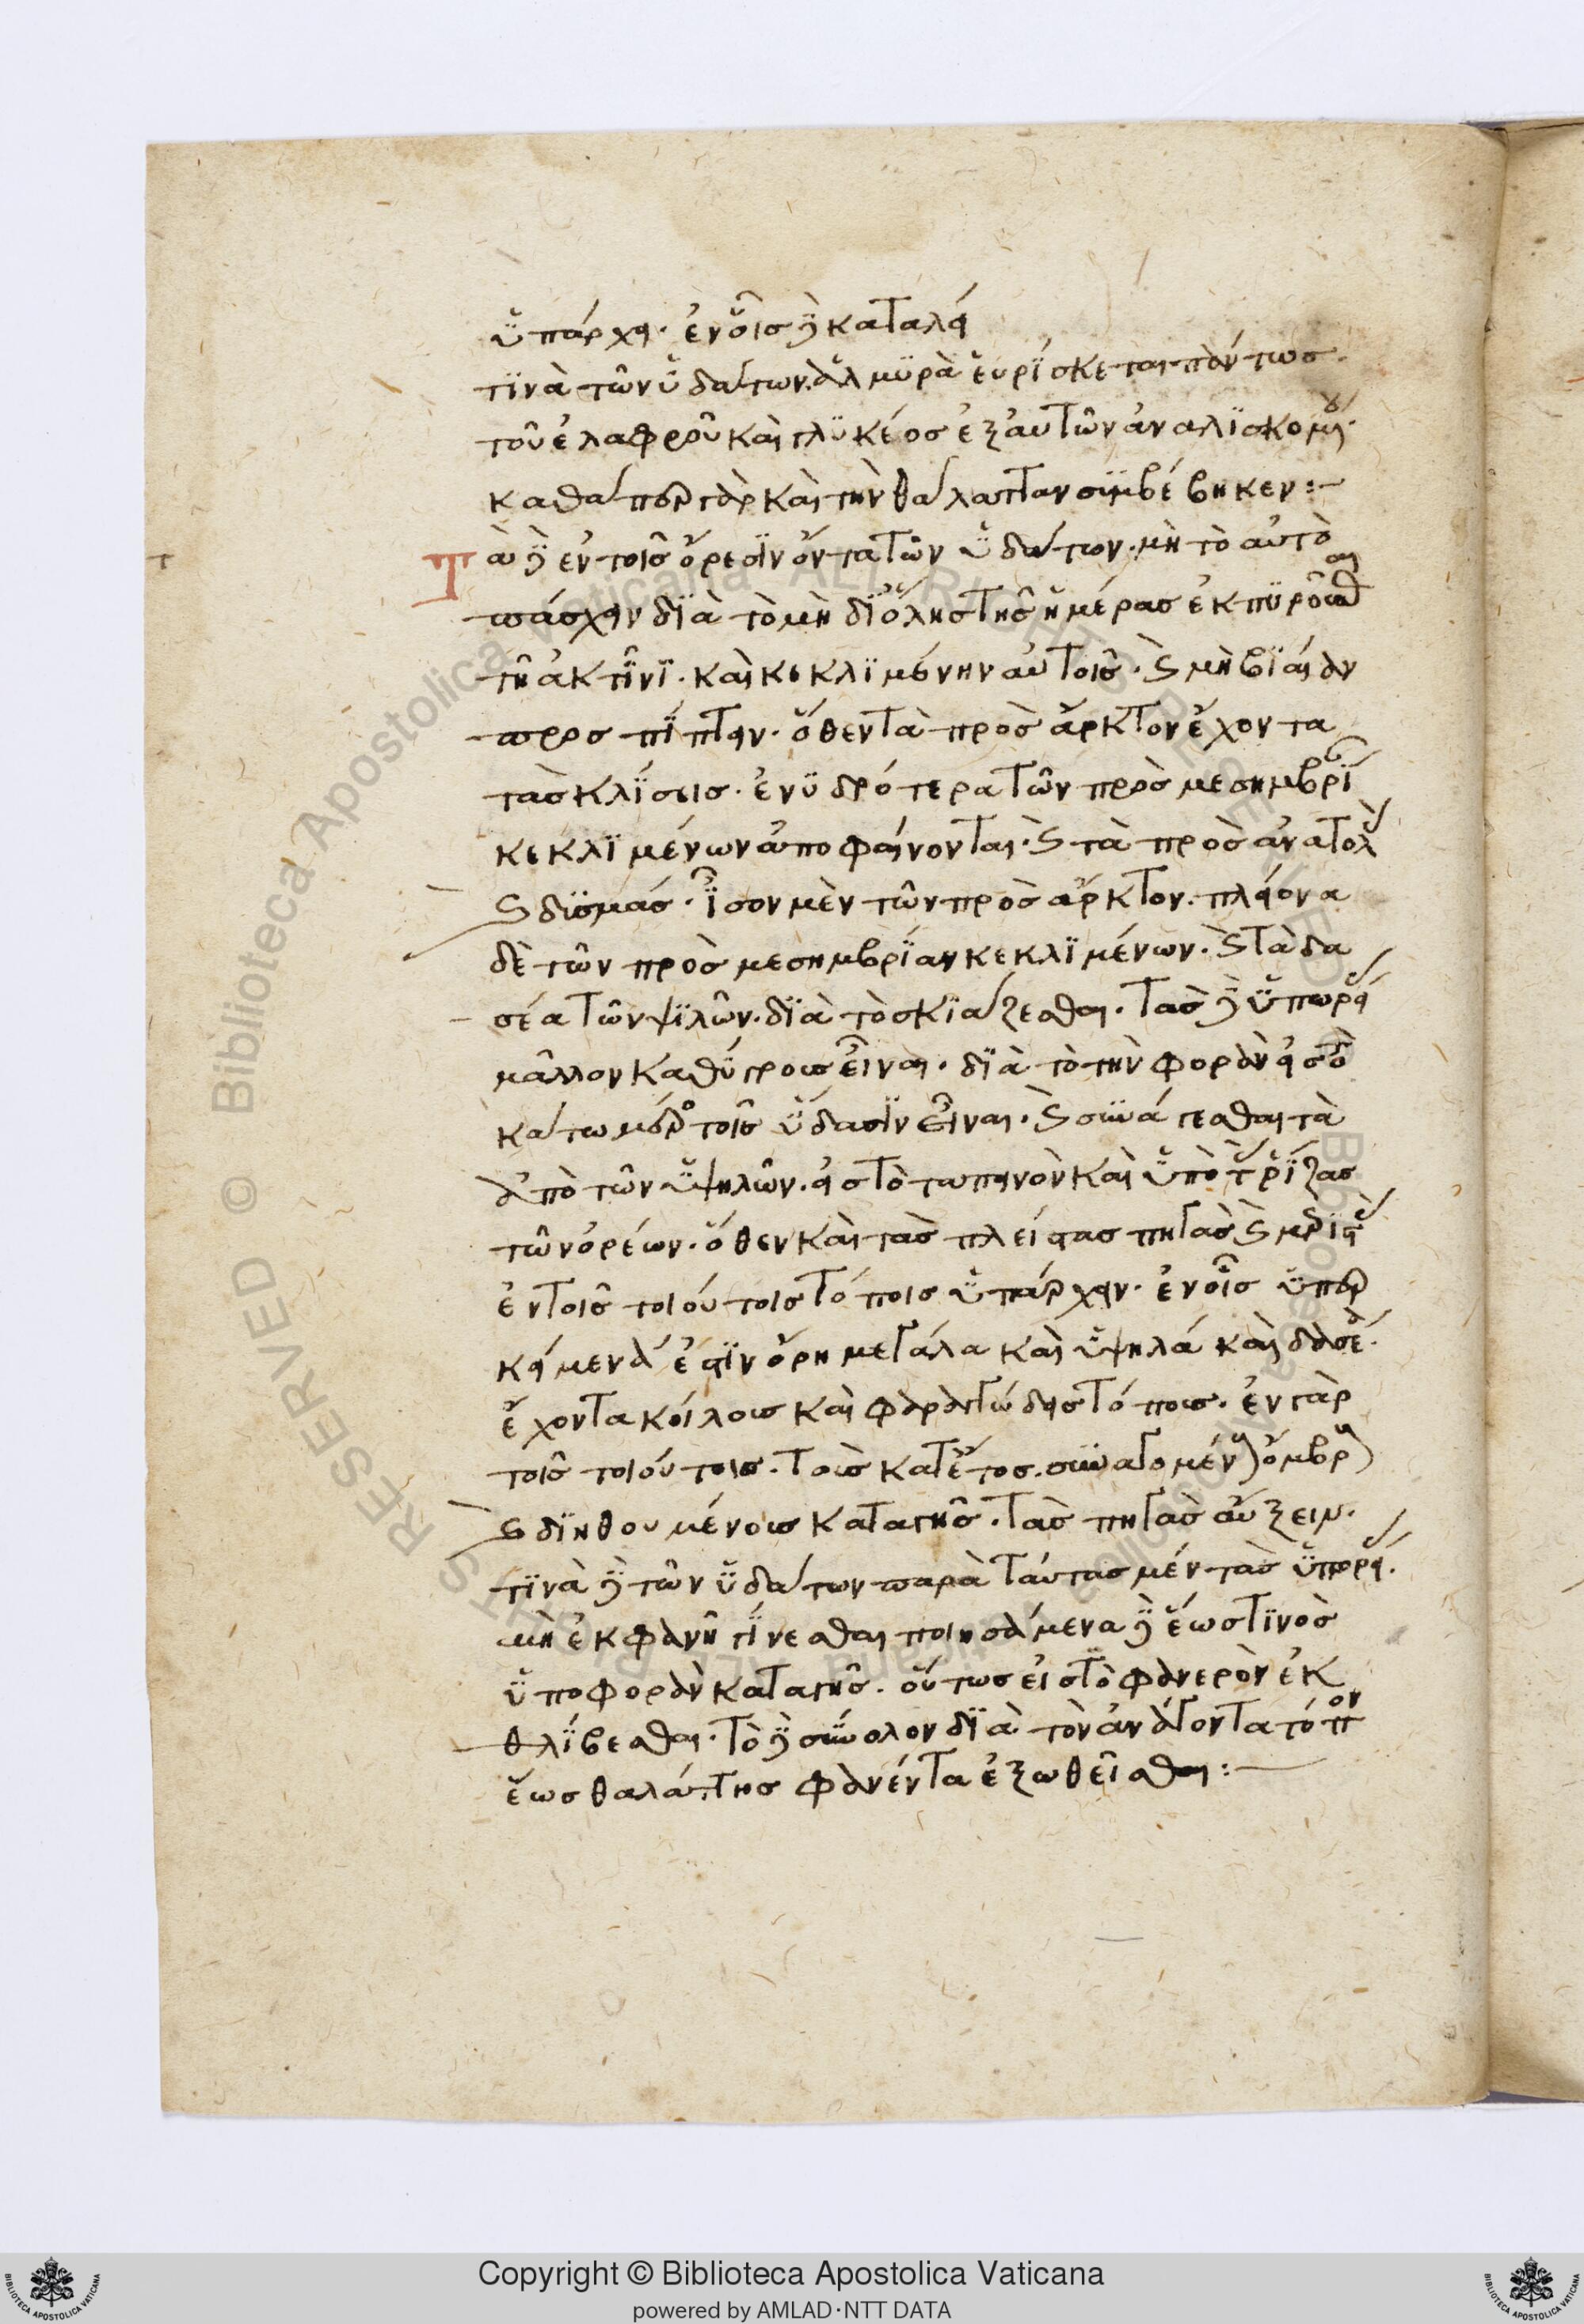 ὑπάρχει. ἐν οἷς δὲ καταλεί
τινὰ τῶν ὑδάτων. ἁλμυρὰ εὑρίσκεται πάντως.
τοῦ ἐλαφροῦ καὶ γλυκέος ἐξ αὐτῶν ἀναλισκομένου.
καθάπερ γὰρ καὶ τὴν θάλατταν συμβέβηκεν :~
Τὰ δὲ ἐν τοῖς ὄρεσιν ὄντα τῶν ὑδάτων. μὴ τὸ αὐτὸ
πάσχειν διὰ τὸ μὴ δι' ὅλης τῆς ἡμέρας ἐκπυροῦσθαι
τῇ ἀκτῖνι. καὶ κεκλιμένην αὐτοῖς. καὶ μὴ βίαιαν
προσπίπτειν. ὅθεν τὰ πρὸς ἄρκτον ἔχοντα
τὰς κλίσεις. ἐνυδρότερα τῶν πρὸς μεσημβρίαν
κεκλιμένων ἀποφαίνονται. καὶ τὰ πρὸς ἀνατολὰς
καὶ δυσμάς. ἴσον μὲν τῶν πρὸς ἄρκτον. πλείονα
δὲ τῶν πρὸς μεσημβρίαν κεκλιμένων. καὶ τὰ δα
σέα τῶν ψιλῶν. διὰ τὸ σκιάζεσθαι. τὰς δὲ ὑπωρείας
μᾶλλον καθύγρους εἶναι. διὰ τὸ τὴν φορὰν εἰς τὸ
κάτω μέρος τοῖς ὕδασιν εἶναι. καὶ συνάγεσθαι τὰ
ἀπὸ τῶν ὑψηλῶν. εἰς τὸ ταπεινὸν καὶ ὑπὸ τὰς ῥίζας
τῶν ὀρέων. ὅθεν καὶ τὰς πλείστας πηγὰς καὶ μεγίστας
ἐν τοῖς τοιούτοις τόποις ὑπάρχειν. ἐν οἷς ὑπερ
κείμενά ἐστιν ὄρη μεγάλα καὶ ὑψηλά καὶ δασέα.
ἔχοντα κοίλους καὶ φαραγγώδεις τόπους. ἐν γὰρ
τοῖς τοιούτοις. τοὺς κατ' ἔτος. συναγομένους ὄμβρους
καὶ διηθουμένους κατὰ γῆς. τὰς πηγὰς αὔξειν.
τινὰ δὲ τῶν ὑδάτων παρὰ ταύτας μὲν τὰς ὑπωρείας.
μὴ ἐκφανῆ γίνεσθαι ποιησάμενα δὲ ἕως τινὸς
ὑποφορὰν κατὰ γῆς. οὕτως εἰς τὸ φανερὸν ἐκ
θλίβεσθαι. τὸ δὲ σύνολον διὰ τὸν ἀνάγοντα τόπον
ἕως θαλάττης φανέντα ἐξωθεῖσθαι :~
Copyright © Biblioteca Apostolica Vaticana
powered by AMLAD·NTT DATA